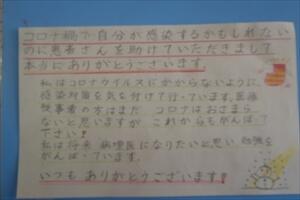 コロナ禍で自分が感染するかもしれない
のに患者さんを助けていただきまして
本当にありがとうございます。
私はコロナウイルスにかからないように、
感染対策を気を付けて行っています。医療
従事者の方はまだ、コロナはおさまら
ないと思いますが、これからもがんばって
下さい!
私は将来、病理医になりたいと思い、勉強を
がんばっています。
いつもありがとうございます!